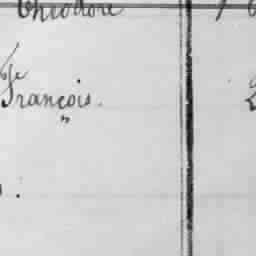 Théodore
François.
"